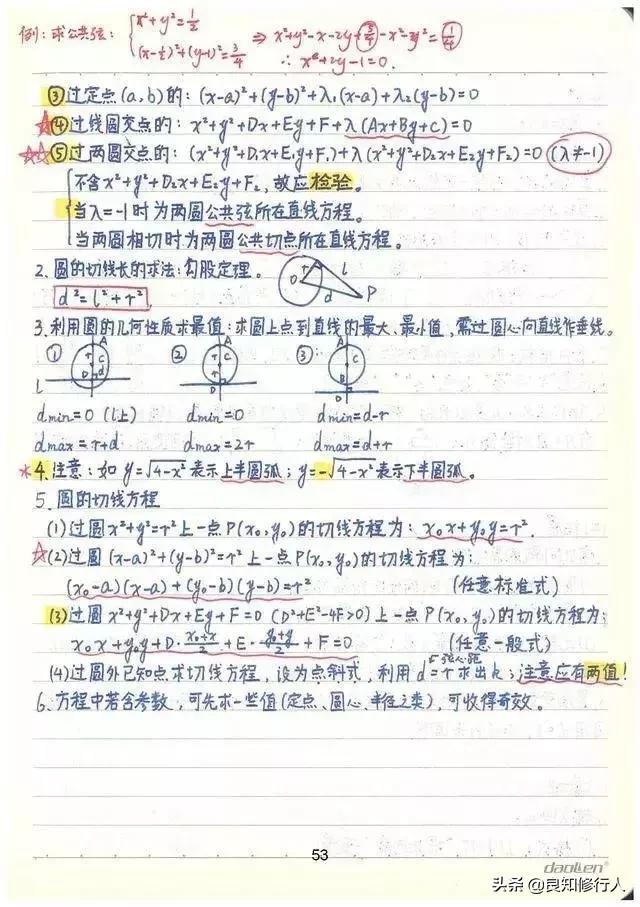 例: 求公共弦: { x²+y²=1/2
(x-1/2)²+(y-1)²=3/4 ⇒ x²+y²-x-2y+5/4-x²-y²=1/4
∴ x+2y-1=0.
③过定点(a,b)的: (x-a)²+(y-b)²+λ₁(x-a)+λ₂(y-b)=0
☆④过线圆交点的: x²+y²+Dx+Ey+F+λ(Ax+By+C)=0
☆☆⑤过两圆交点的: (x²+y²+D₁x+E₁y+F₁)+λ(x²+y²+D₂x+E₂y+F₂)=0 (λ≠-1)
不含x²+y²+D₂x+E₂y+F₂, 故应检验。
当λ=-1时为两圆公共弦所在直线方程。
当两圆相切时为两圆公共切点所在直线方程。
2. 圆的切线长的求法: 勾股定理。
d²=l²+r²
O r l d P
3. 利用圆的几何性质求最值: 求圆上点到直线的最大、最小值, 需过圆心向直线作垂线。
① A r C D d l ② A r C D ③ A r C B D
dmin=0 (l上) dmin=0 dmin=d-r
dmax=r+d dmax=2r dmax=d+r
*4. 注意: 如y=√4-x² 表示上半圆弧; y=-√4-x² 表示下半圆弧。
5. 圆的切线方程
(1)过圆x²+y²=r²上一点P(x₀,y₀)的切线方程为: x₀x+y₀y=r².
☆(2)过圆(x-a)²+(y-b)²=r²上一点P(x₀,y₀)的切线方程为:
(x₀-a)(x-a)+(y₀-b)(y-b)=r² (任意标准式)
(3)过圆x²+y²+Dx+Ey+F=0 (D²+E²-4F>0)上一点P(x₀,y₀)的切线方程为:
x₀x+y₀y+D·x₀+x/2+E·y₀+y/2+F=0 (任意一般式)
(4)过圆外已知点求切线方程, 设为点斜式, 利用d=r求出k; 注意应有两值!
弦心距
6. 方程中若含参数, 可先求一些值(定点、圆心、半径之类), 可收得奇效。
53
daolen
头条 @良知修行人